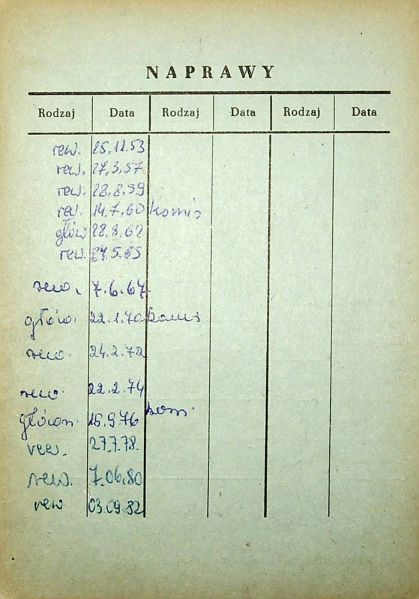 NAPRAWY
Rodzaj Data Rodzaj Data Rodzaj Data
rew. 25.11.53
rew. 27.3.57
rew. 28.8.59
rew. 14.7.60 komis
głów 28.8.62
rew. 27.5.65
rew. 7.6.67
główn. 22.1.70 komis
rew. 24.2.72
rew. 22.2.74
główn. 15.9.76 kom.
rew. 27.7.78.
rew. 7.06.80
rew 03.09.82